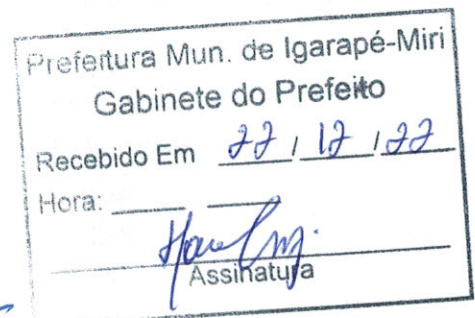 Prefeitura Mun. de Igarapé-Miri
Gabinete do Prefeito
Recebido Em 22 / 12 / 22
Hora: ____ ____
Assinatura